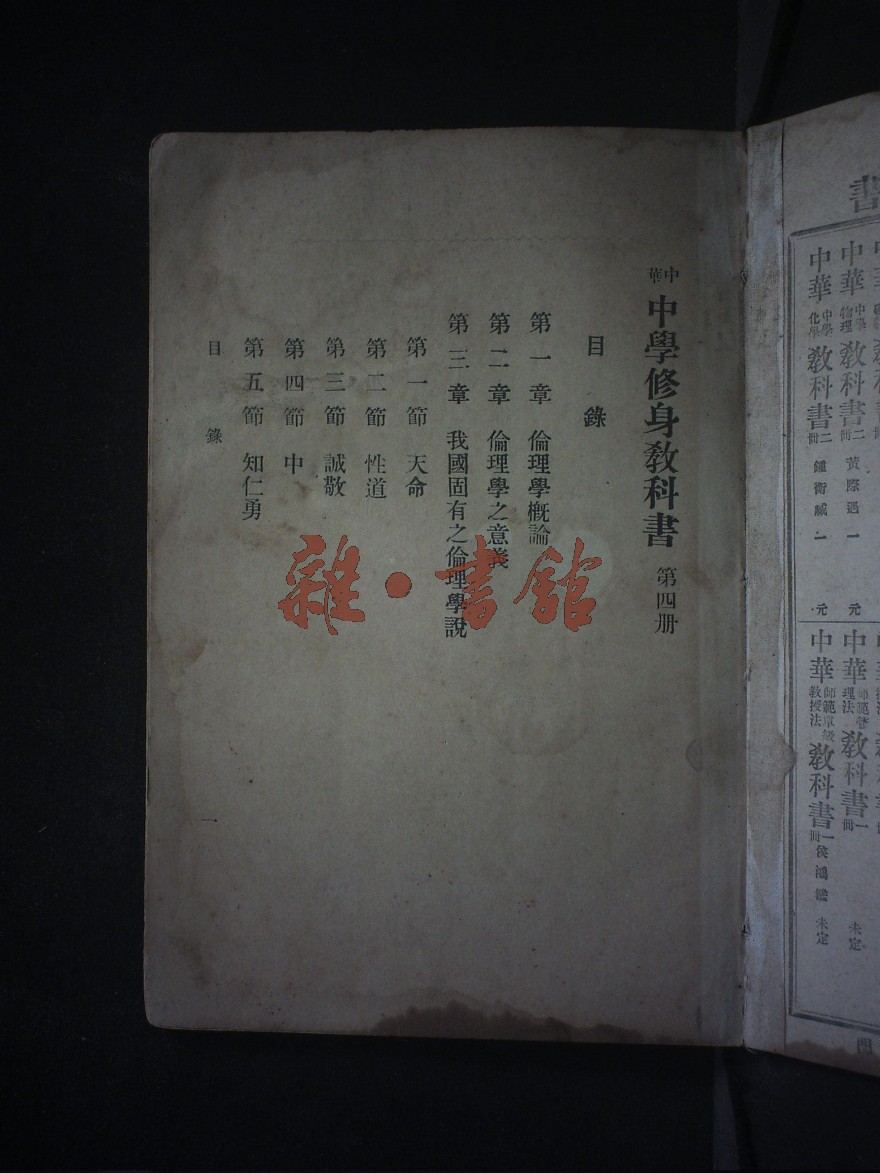 書
中華中學物理教科書二冊 黃際遇 一元
中華中學化學教科書二冊 鍾衡臧 一元
教科書一冊 未定
中華師範單級教授法教科書一冊 侯鴻鑑 未定
中華中學修身教科書 第四册
目錄
第一章 倫理學概論
第二章 倫理學之意義
第三章 我國固有之倫理學說
第一節 天命
第二節 性道
第三節 誠敬
第四節 中
第五節 知仁勇
目錄
一
雜·書館